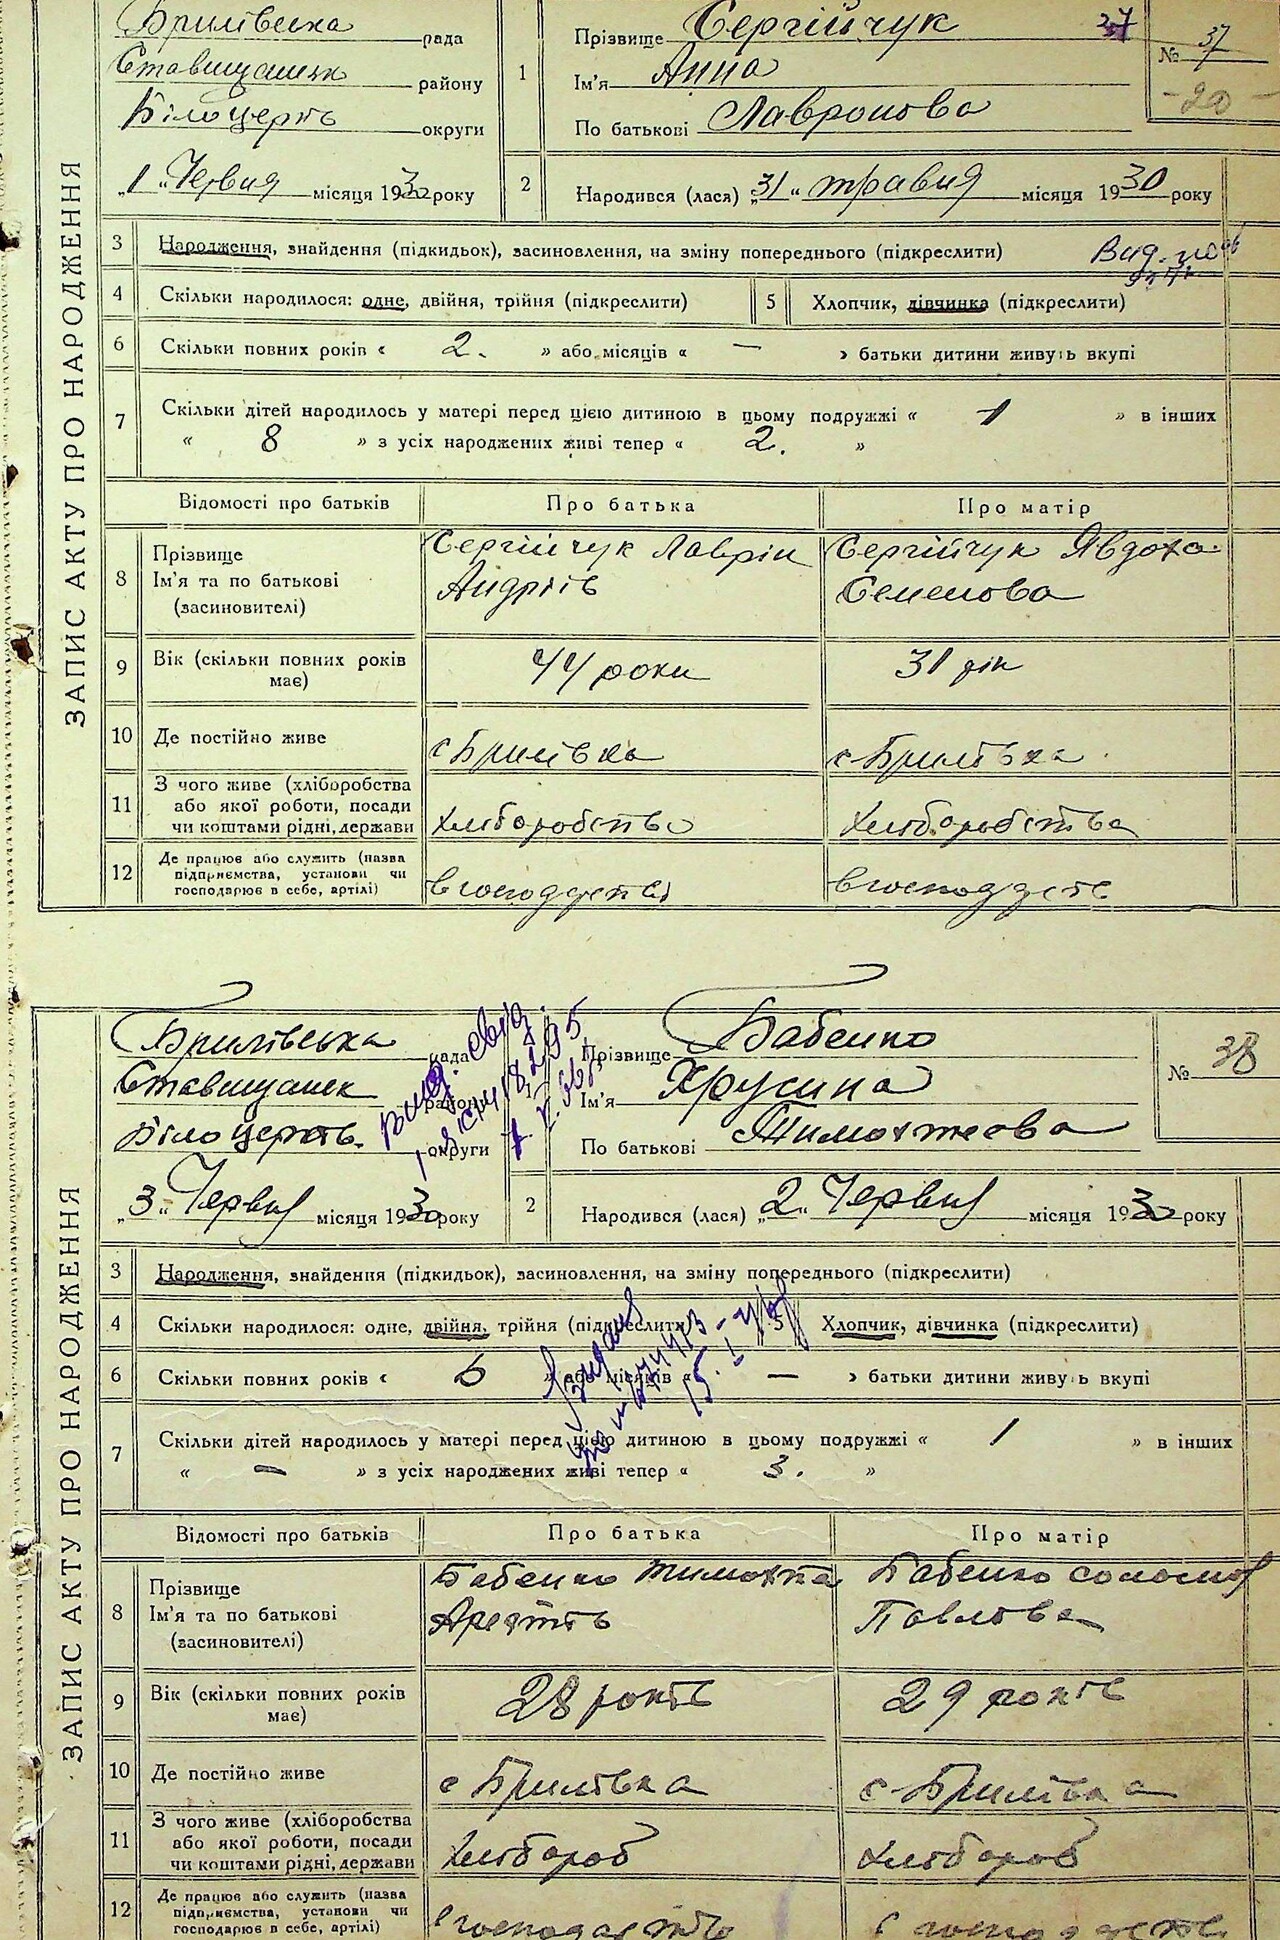 ЗАПИС АКТУ ПРО НАРОДЖЕННЯ
Брилівська рада
району
Білоцерк округи
„1" Червня місяця 1930 року
1 Прізвище Сергійчук
Ім'я Анна
По батькові Лавронова
№ 37
-20-
2 Народився (лася) „31" травня місяця 1930 року
3 Народження, знайдення (підкидьок), засиновлення, на зміну попереднього (підкреслити)
4 Скільки народилося: одне, двійня, трійня (підкреслити) 5 Хлопчик, дівчинка (підкреслити)
6 Скільки повних років « 2. » або місяців « — » батьки дитини живуть вкупі
7 Скільки дітей народилось у матері перед цією дитиною в цьому подружжі « 1 » в інших
« 8 » з усіх народжених живі тепер « 2. »
Відомості про батьків Про батька Про матір
8 Прізвище Сергійчук Лаврін Сергійчук Явдоха
Ім'я та по батькові Андріїв Семенова
(засиновителі)
9 Вік (скільки повних років 44 роки 31 рік
має)
10 Де постійно живе с Брилівка с Брилівка
11 З чого живе (хліборобства
або якої роботи, посади
чи коштами рідні, держави Хліборобство Хліборобства
12 Де працює або служить (назва
підприємства, установи чи
господарює в себе, артілі)
ЗАПИС АКТУ ПРО НАРОДЖЕННЯ
Брилівська рада
району
Білоцерк. округи
„3" Червня місяця 1930 року
1 Прізвище Бабенко
Ім'я Хрусина
По батькові Тимохтеова
№ 38
2 Народився (лася) „2" Червня місяця 1930 року
3 Народження, знайдення (підкидьок), засиновлення, на зміну попереднього (підкреслити)
4 Скільки народилося: одне, двійня, трійня (підкреслити) 5 Хлопчик, дівчинка (підкреслити)
6 Скільки повних років « 6 » або місяців « — » батьки дитини живуть вкупі
7 Скільки дітей народилось у матері перед цією дитиною в цьому подружжі « 1 » в інших
« — » з усіх народжених живі тепер « 3. »
Відомості про батьків Про батька Про матір
8 Прізвище Бабенко Бабенко
Ім'я та по батькові Павлова
(засиновителі)
9 Вік (скільки повних років 28 років 29 років
має)
10 Де постійно живе с Брилівка с Брилівка
11 З чого живе (хліборобства
або якої роботи, посади
чи коштами рідні, держави Хлібороб Хлібороб
12 Де працює або служить (назва
підприємства, установи чи
господарює в себе, артілі)